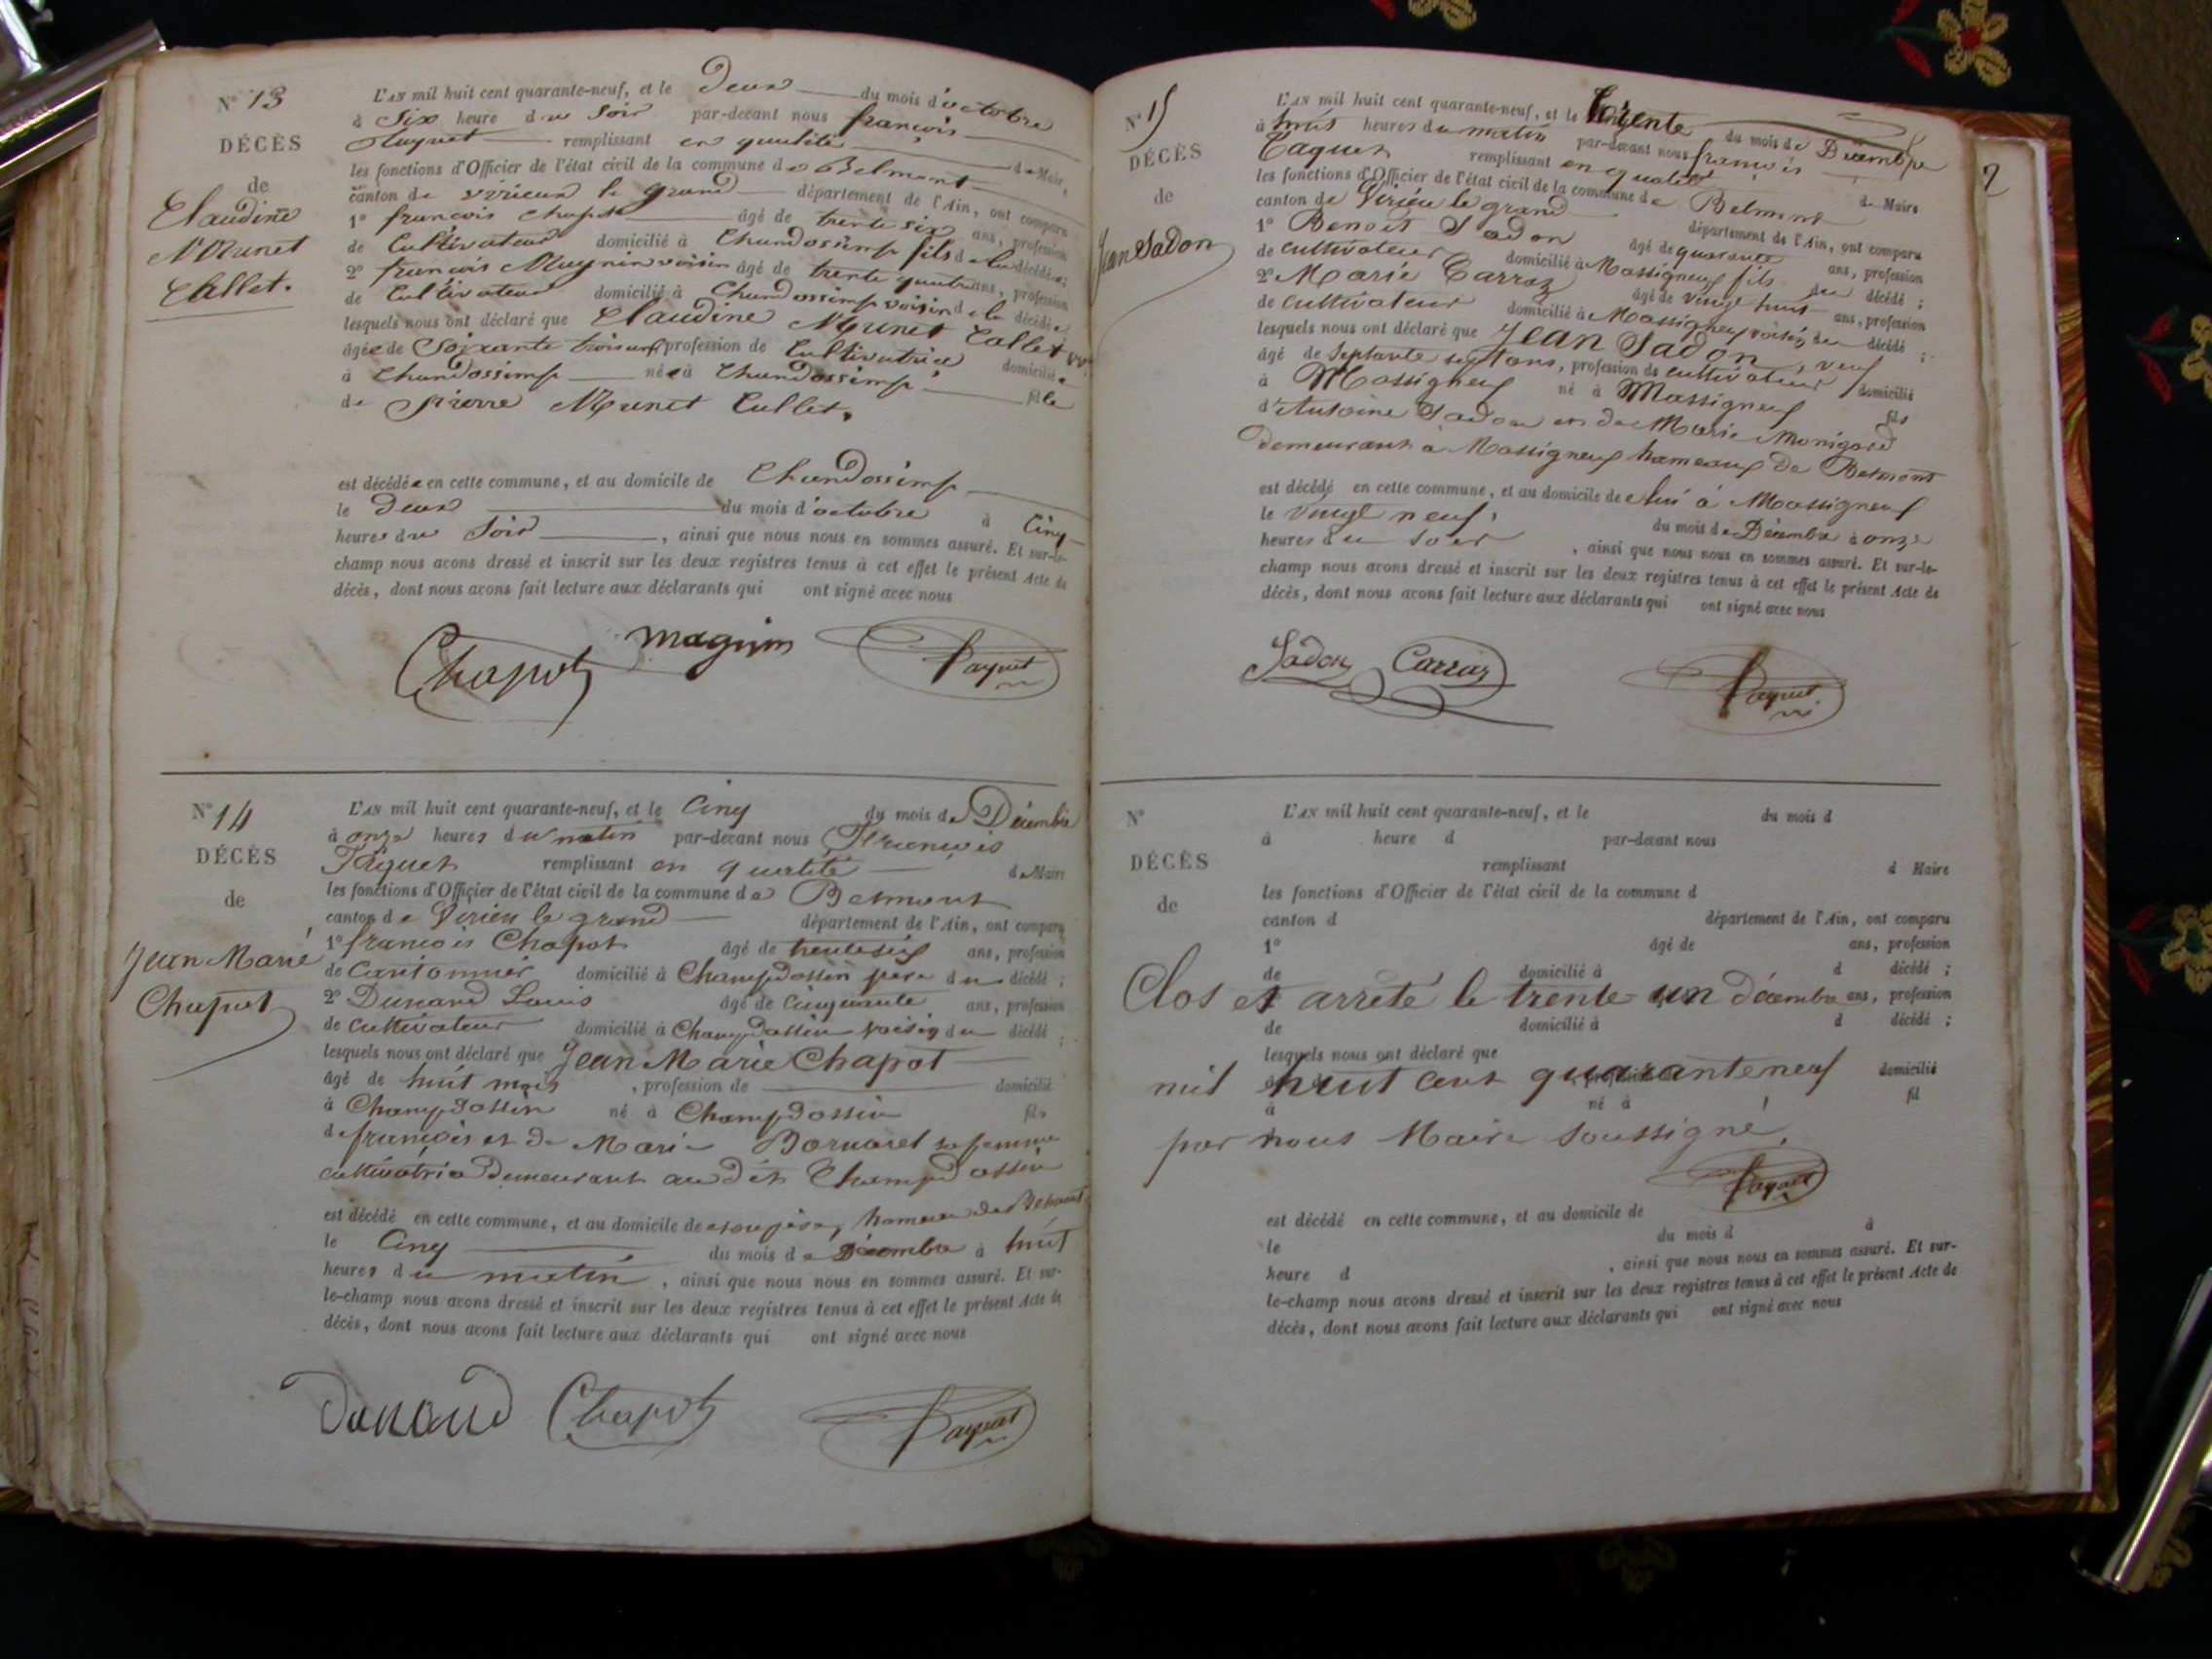 N° 13
DÉCÈS
de
Claudine
Munet
Callet.
L'AN mil huit cent quarante-neuf, et le Deux du mois d'octobre
à Six heure du Soir par-devant nous françois
Paquet remplissant en qualité de Maire,
les fonctions d'Officier de l'état civil de la commune de Belmont
canton de virieux le grand département de l'Ain, ont comparu
1° françois Chapot âgé de trente six ans, profession
de Cultivateur domicilié à Chandossimp fils de la décédée;
2° françois Magnin voisin âgé de trente quatre ans, profession
de Cultivateur domicilié à Chandossimp voisin de la décédée
lesquels nous ont déclaré que Claudine Munet Callet vve
âgée de Soixante trois ans, profession de Cultivatrice domiciliée
à Chandossimp née à Chandossimp fille
de pierre Munet Callet.
est décédée en cette commune, et au domicile de Chandossimp
le Deux du mois d'octobre à Cinq
heures du Soir, ainsi que nous nous en sommes assuré. Et sur-le-
champ nous avons dressé et inscrit sur les deux registres tenus à cet effet le présent Acte de
décès, dont nous avons fait lecture aux déclarants qui ont signé avec nous
Chapot magnin Paquet
N° 14
DÉCÈS
de
Jean Marie
Chapot
L'AN mil huit cent quarante-neuf, et le Cinq du mois de Décembre
à onze heures du matin par-devant nous François
Paquet remplissant en qualité de Maire
les fonctions d'Officier de l'état civil de la commune de Belmont
canton de Virieu le grand département de l'Ain, ont comparu
1° françois Chapot âgé de trente six ans, profession
de Cantonnier domicilié à Champdossin père du décédé;
2° Dunand Louis âgé de Cinquante ans, profession
de Cultivateur domicilié à Champdossin voisin du décédé;
lesquels nous ont déclaré que Jean Marie Chapot
âgé de huit mois, profession de domicilié
à Champdossin né à Champdossin fils
de françois et de Marie Bornarel sa femme
cultivatrice Demeurant au dit Champdossin
est décédé en cette commune, et au domicile de son père, hameau de Belmont
le Cinq du mois de Décembre à huit
heures du matin, ainsi que nous nous en sommes assuré. Et sur-
le-champ nous avons dressé et inscrit sur les deux registres tenus à cet effet le présent Acte de
décès, dont nous avons fait lecture aux déclarants qui ont signé avec nous
Dunand Chapot Paquet
N° 15
DÉCÈS
de
Jean Sadon
2
L'AN mil huit cent quarante-neuf, et le trente du mois de Décembre
à huit heures du matin par-devant nous françois
Paquet remplissant en qualité de Maire
les fonctions d'Officier de l'état civil de la commune de Belmont
canton de Virieu le grand département de l'Ain, ont comparu
1° Benoît Sadon âgé de quarante ans, profession
de cultivateur domicilié à Massigneux fils du décédé;
2° Marie Carraz âgé de vingt huit ans, profession
de cultivateur domicilié à Massigneux voisin du décédé;
lesquels nous ont déclaré que Jean Sadon, veuf
âgé de Septante sept ans, profession de cultivateur domicilié
à Massigneux né à Massigneux fils
d'Antoine Sadon et de Marie Monigard
demeurant à Massigneux hameaux de Belmont
est décédé en cette commune, et au domicile de lui à Massigneux
le vingt neuf du mois de Décembre à onze
heures du Soir, ainsi que nous nous en sommes assuré. Et sur-le-
champ nous avons dressé et inscrit sur les deux registres tenus à cet effet le présent Acte de
décès, dont nous avons fait lecture aux déclarants qui ont signé avec nous
Sadon Carraz Paquet
N°
DÉCÈS
de
L'AN mil huit cent quarante-neuf, et le du mois d
à heure d par-devant nous
remplissant d Maire
les fonctions d'Officier de l'état civil de la commune d
canton d département de l'Ain, ont comparu
1° âgé de ans, profession
de domicilié à d décédé;
Clos et arrêté le trente un décembre ans, profession
de domicilié à d décédé;
lesquels nous ont déclaré que
mil huit cent quarante neuf domicilié
à né à fil
par nous Maire soussigné,
Paquet
est décédé en cette commune, et au domicile de
le du mois d à
heure d, ainsi que nous nous en sommes assuré. Et sur-
le-champ nous avons dressé et inscrit sur les deux registres tenus à cet effet le présent Acte de
décès, dont nous avons fait lecture aux déclarants qui ont signé avec nous